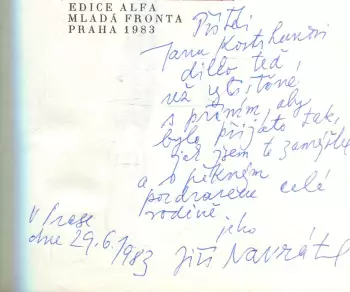 EDICE ALFA
MLADÁ FRONTA
PRAHA 1983
Příteli
Janu
dílko teď,
už vytištěné
s přáním, aby
bylo přijato tak,
jak jsem to zamýšlel
a s pěkným
pozdravem celé
rodině
jeho
V Praze
dne 29.6.1983
Jiří Navrátil